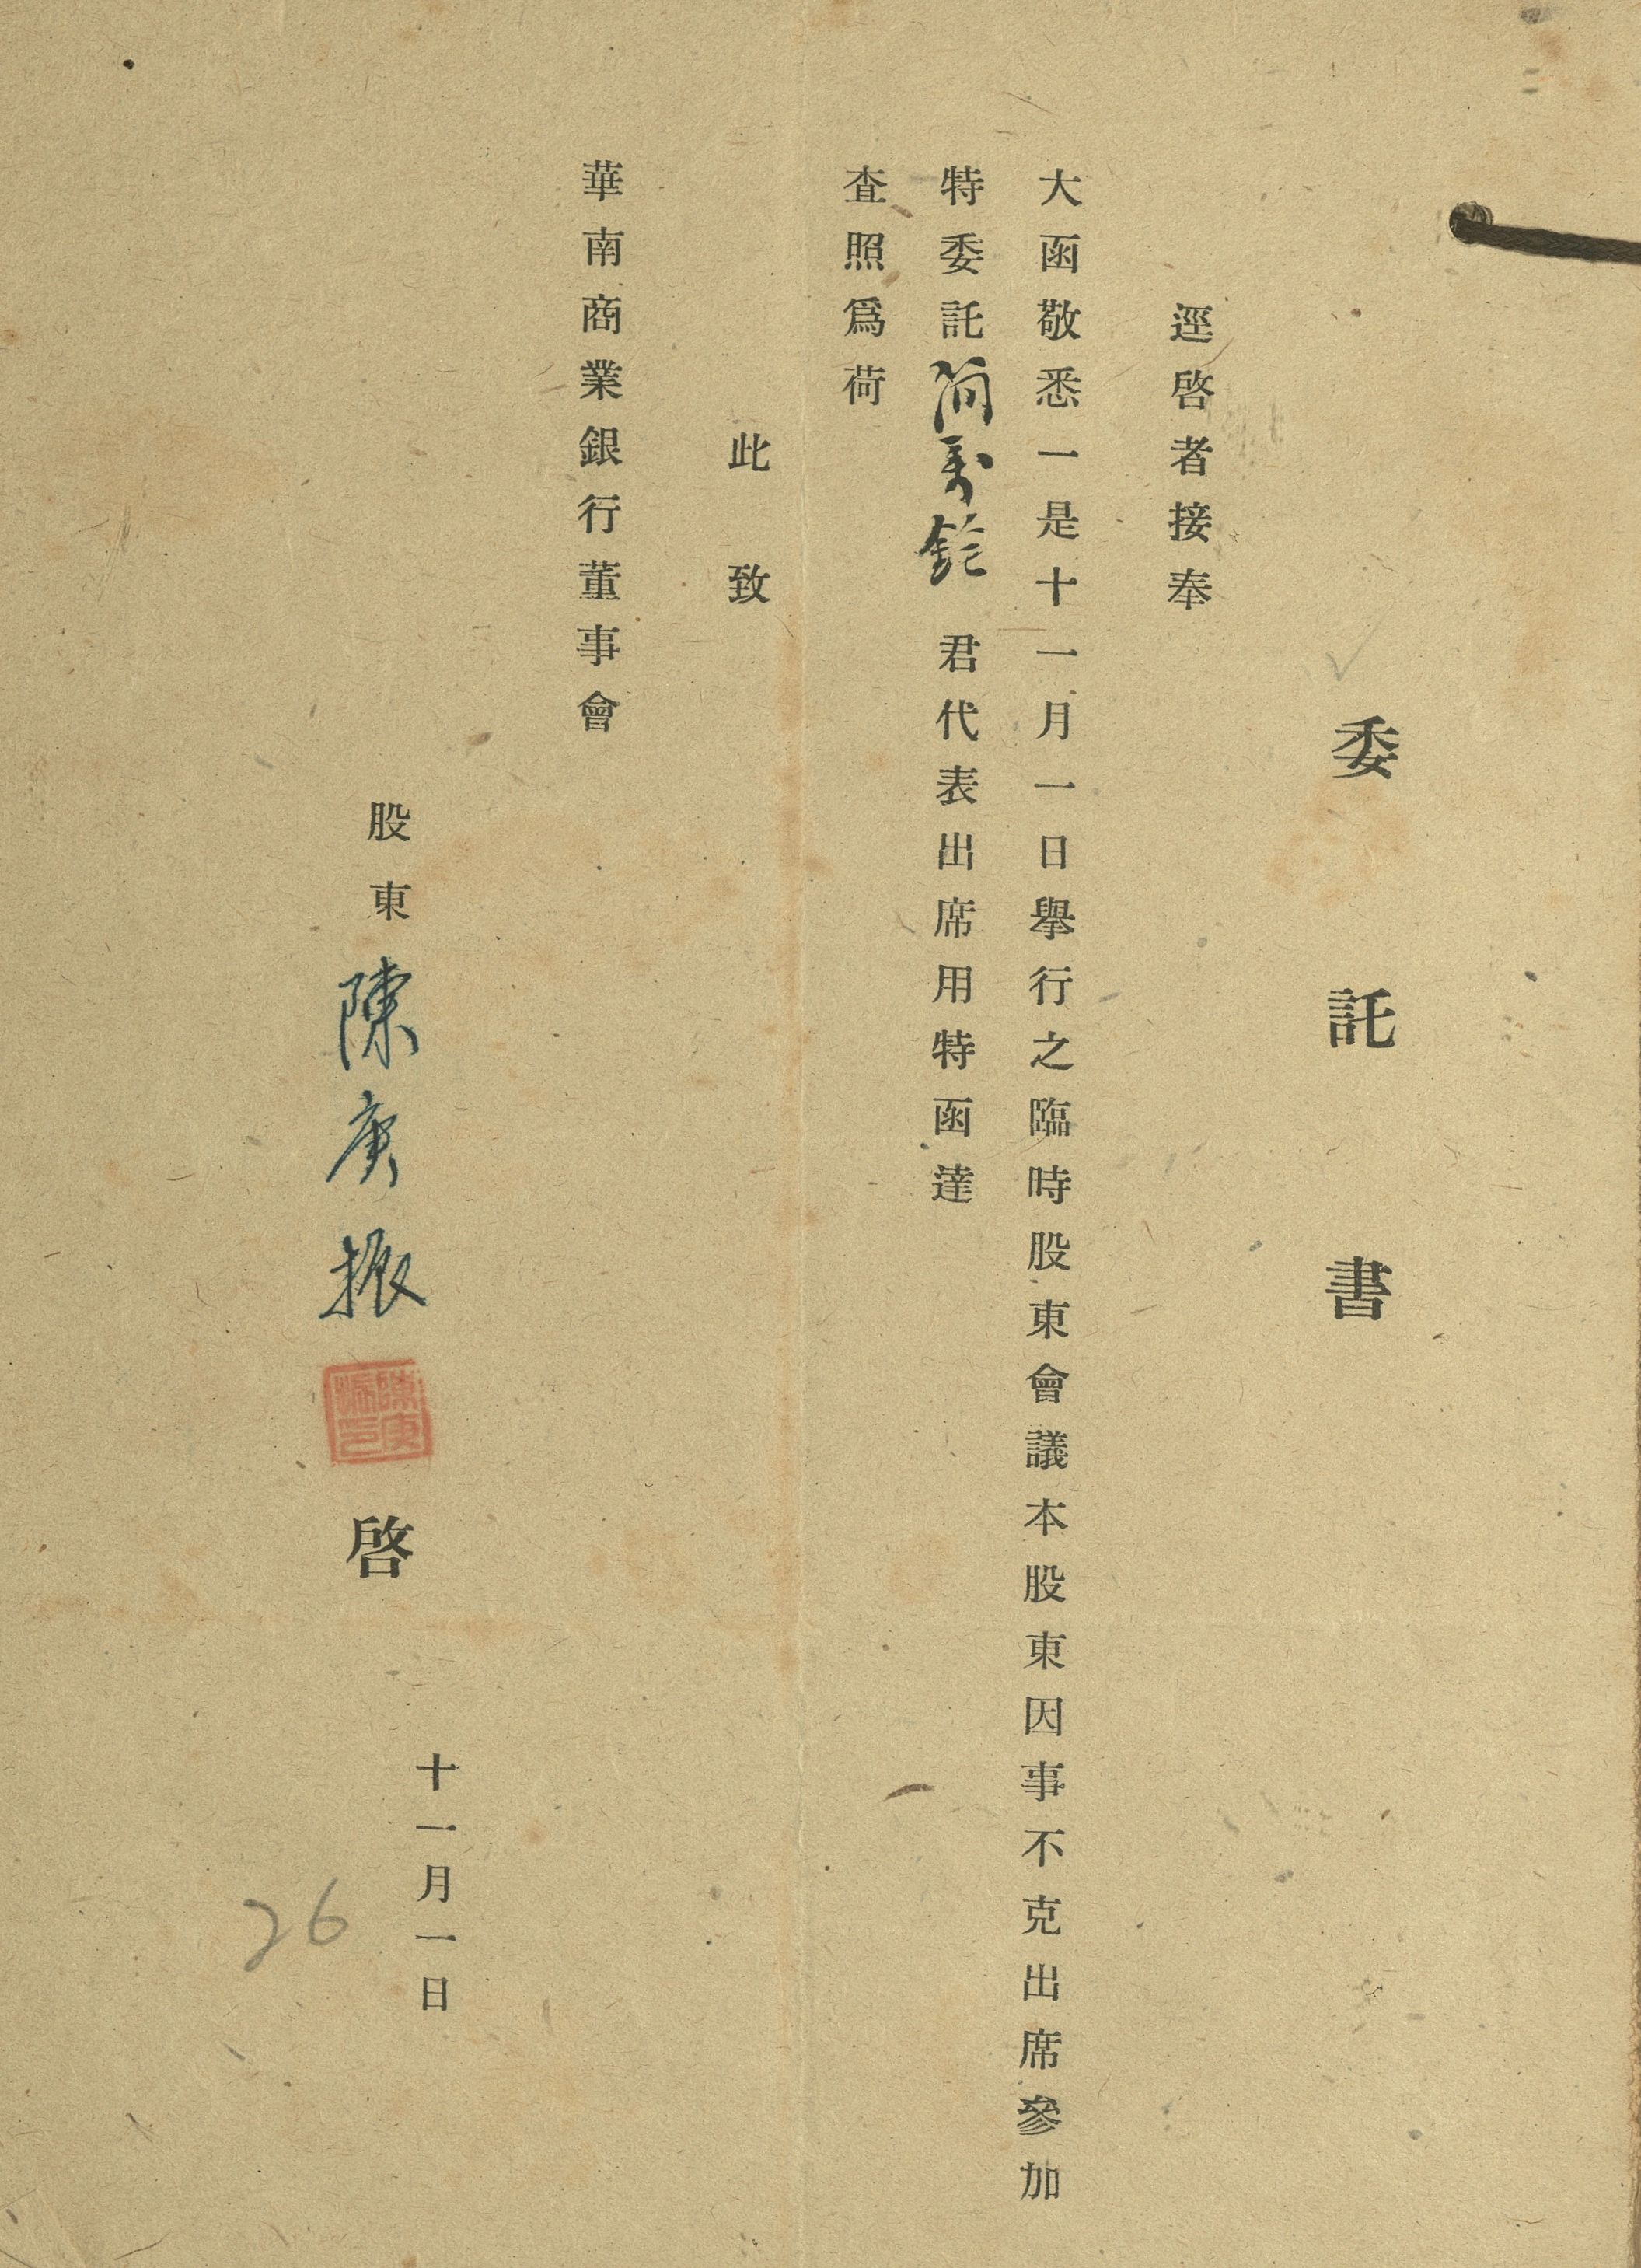 委託書
逕啓者接奉
大函敬悉一是十一月一日舉行之臨時股東會議本股東因事不克出席參加
特委託簡萬銓君代表出席用特函達
查照爲荷
此致
華南商業銀行董事會
股東陳庚振啓
陳庚振印
十一月一日
26